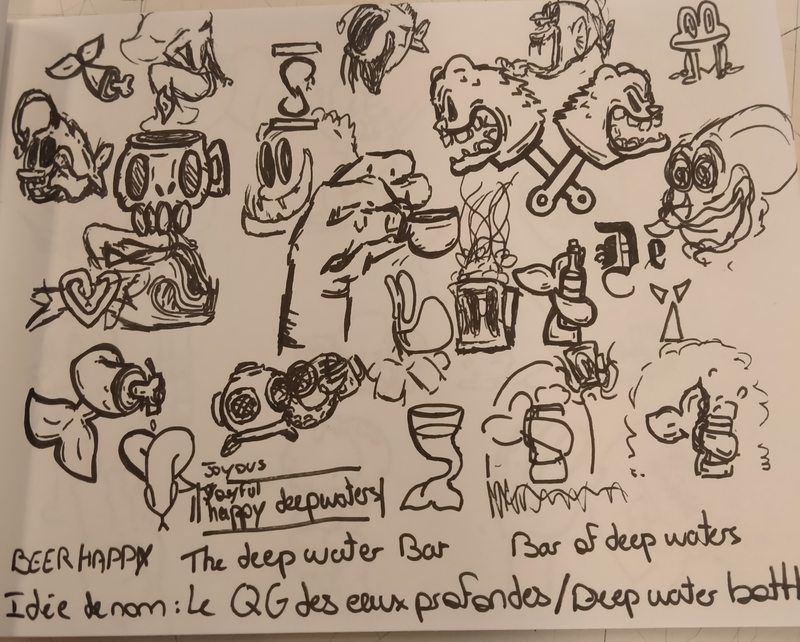 De
Joyous
Joyful
happy deepwaters
BEER HAPPY The deep water Bar Bar of deep waters
Idée de nom : Le QG des eaux profondes / Deep water bottl